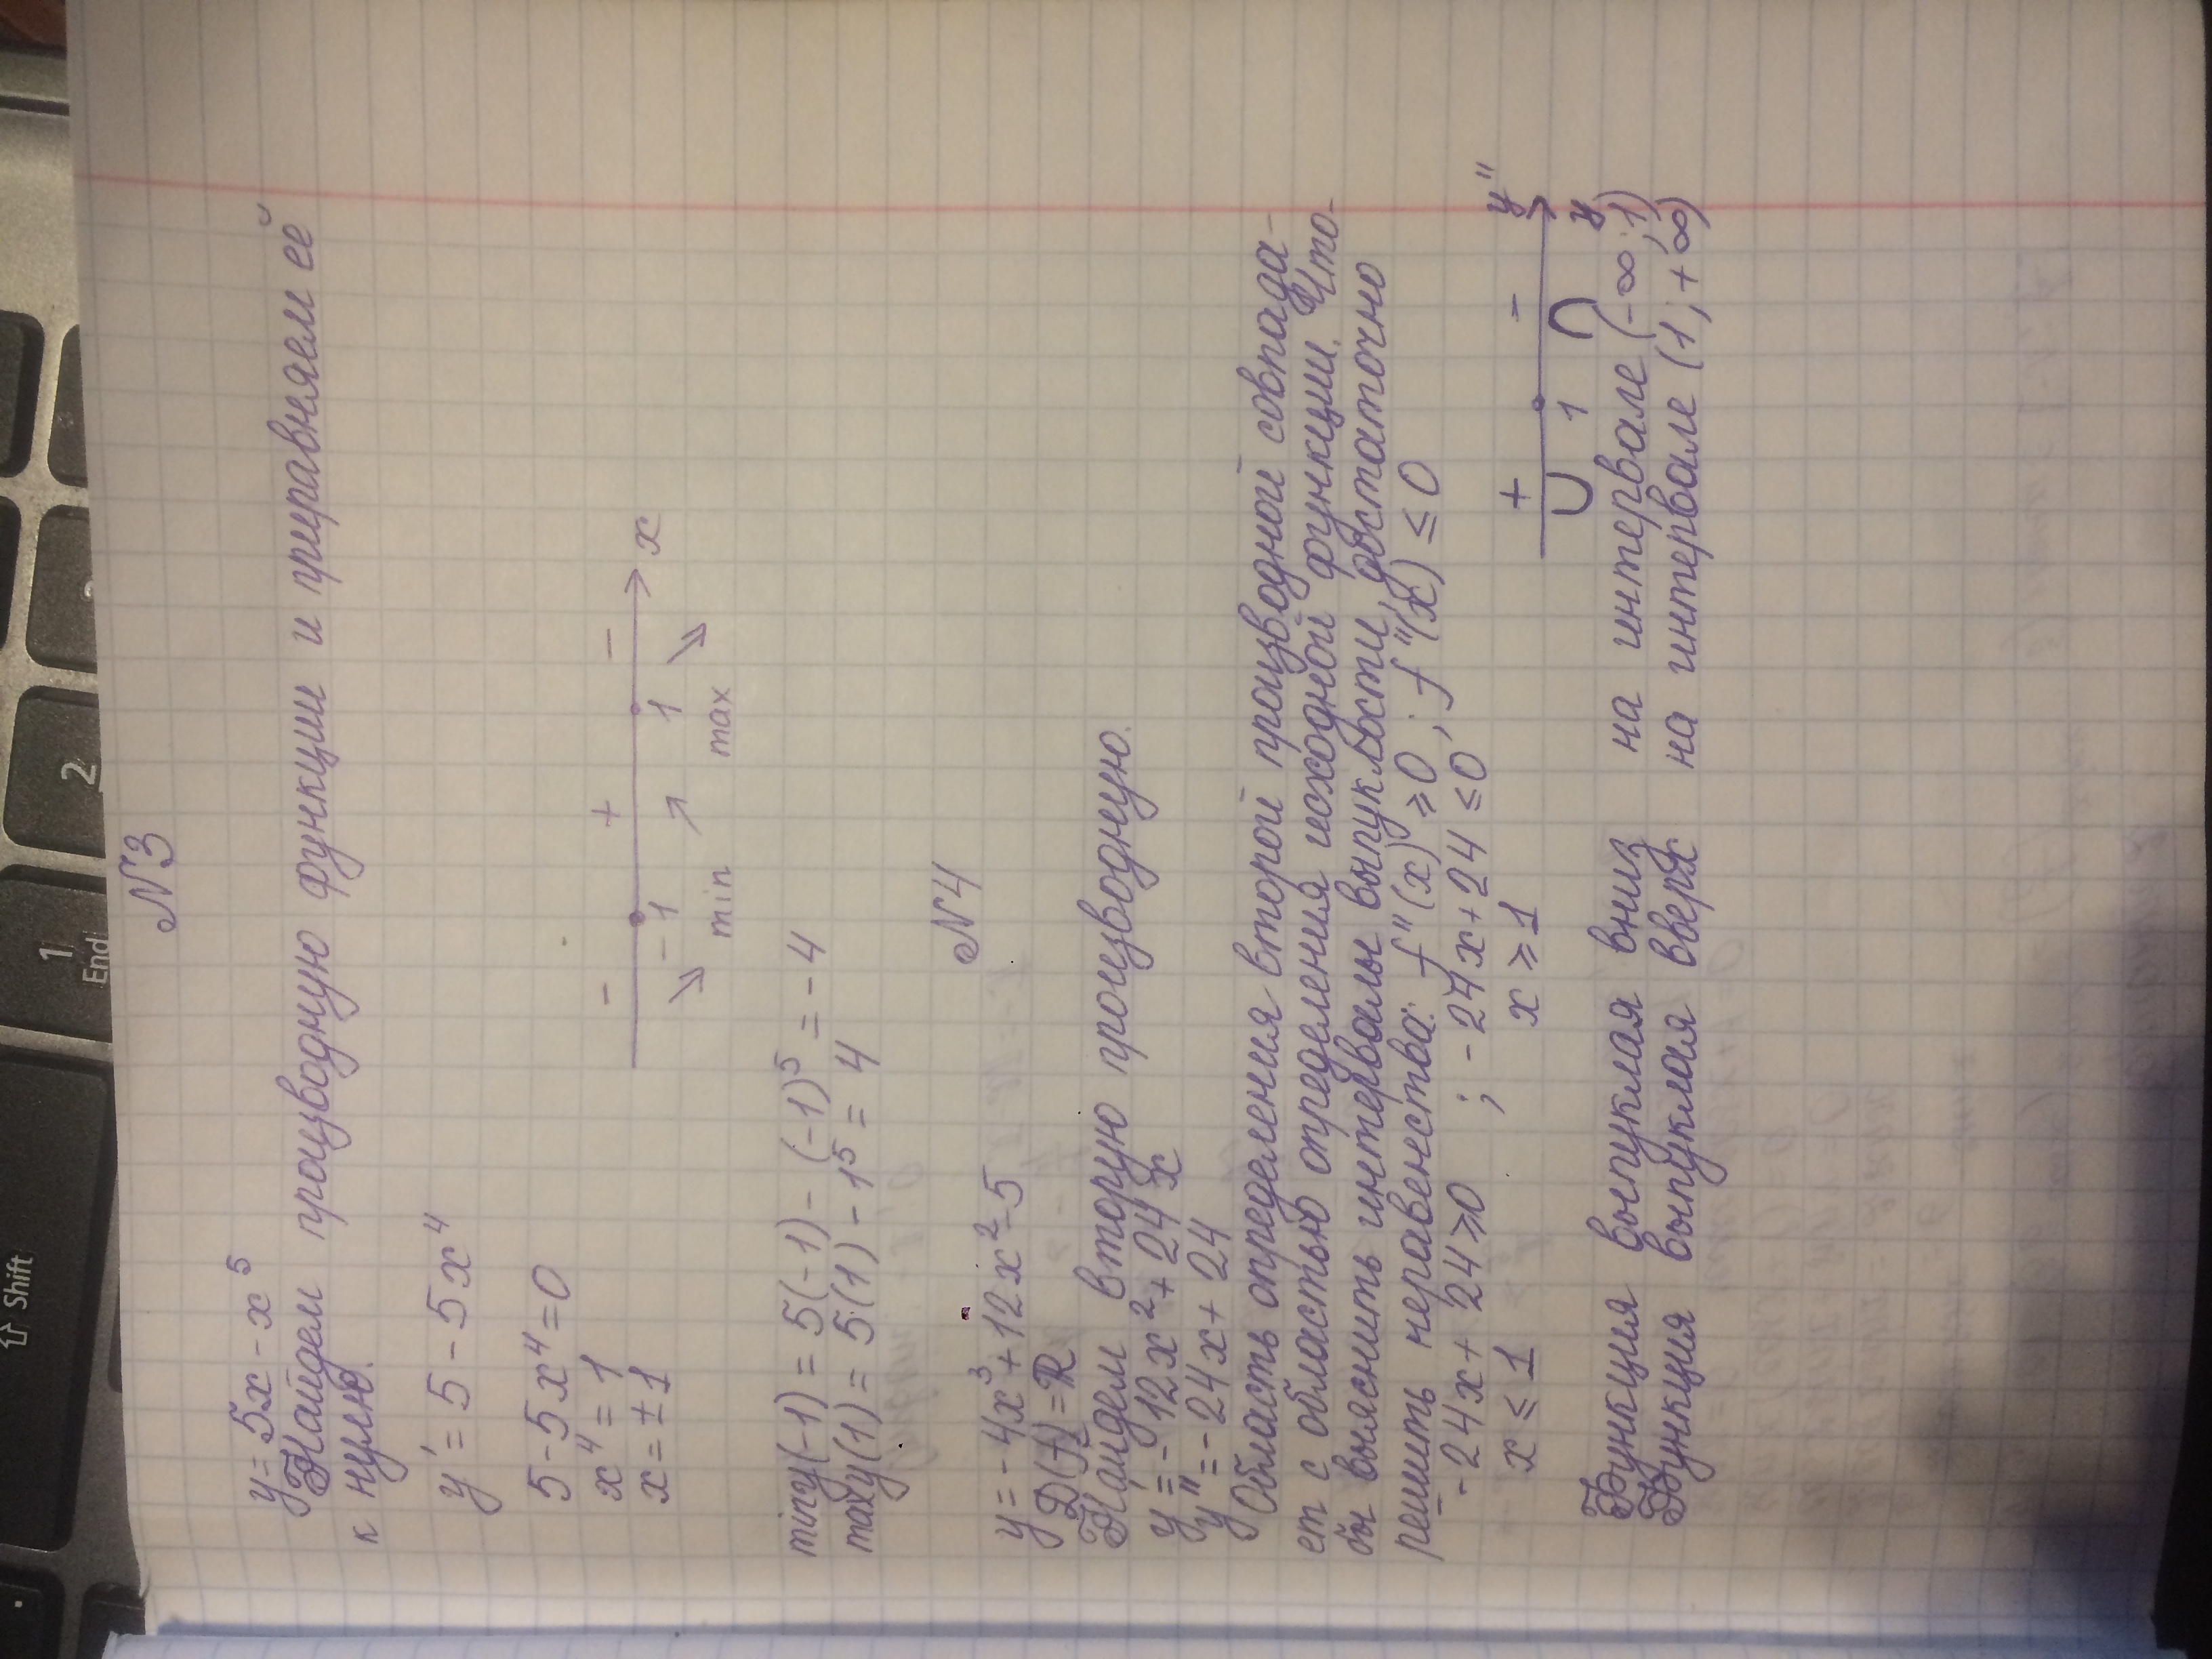 N3
y = 5x - x⁵
Найдем производную функции и приравняем её
к нулю.
y' = 5 - 5x⁴
5 - 5x⁴ = 0
x⁴ = 1
x = ± 1
- + -
x
-1 1
min max
miny(-1) = 5(-1) - (-1)⁵ = -4
maxy(1) = 5·(1) - 1⁵ = 4
N4
y = -4x³ + 12x² - 5
D(f) = R
Найдем вторую производную.
y' = -12x² + 24x
y'' = -24x + 24
Область определения второй производной совпада-
ет с областью определения исходной функции. Что-
бы выяснить интервалы выпуклости, достаточно
решить неравенства: f''(x) ≥ 0 ; f''(x) ≤ 0
-24x + 24 ≥ 0 ; -24x + 24 ≤ 0
x ≤ 1 x ≥ 1
+ - y''
1 y
Функция выпуклая вниз на интервале (-∞; 1)
Функция выпуклая вверх на интервале (1; +∞)
Shift
1
End
2